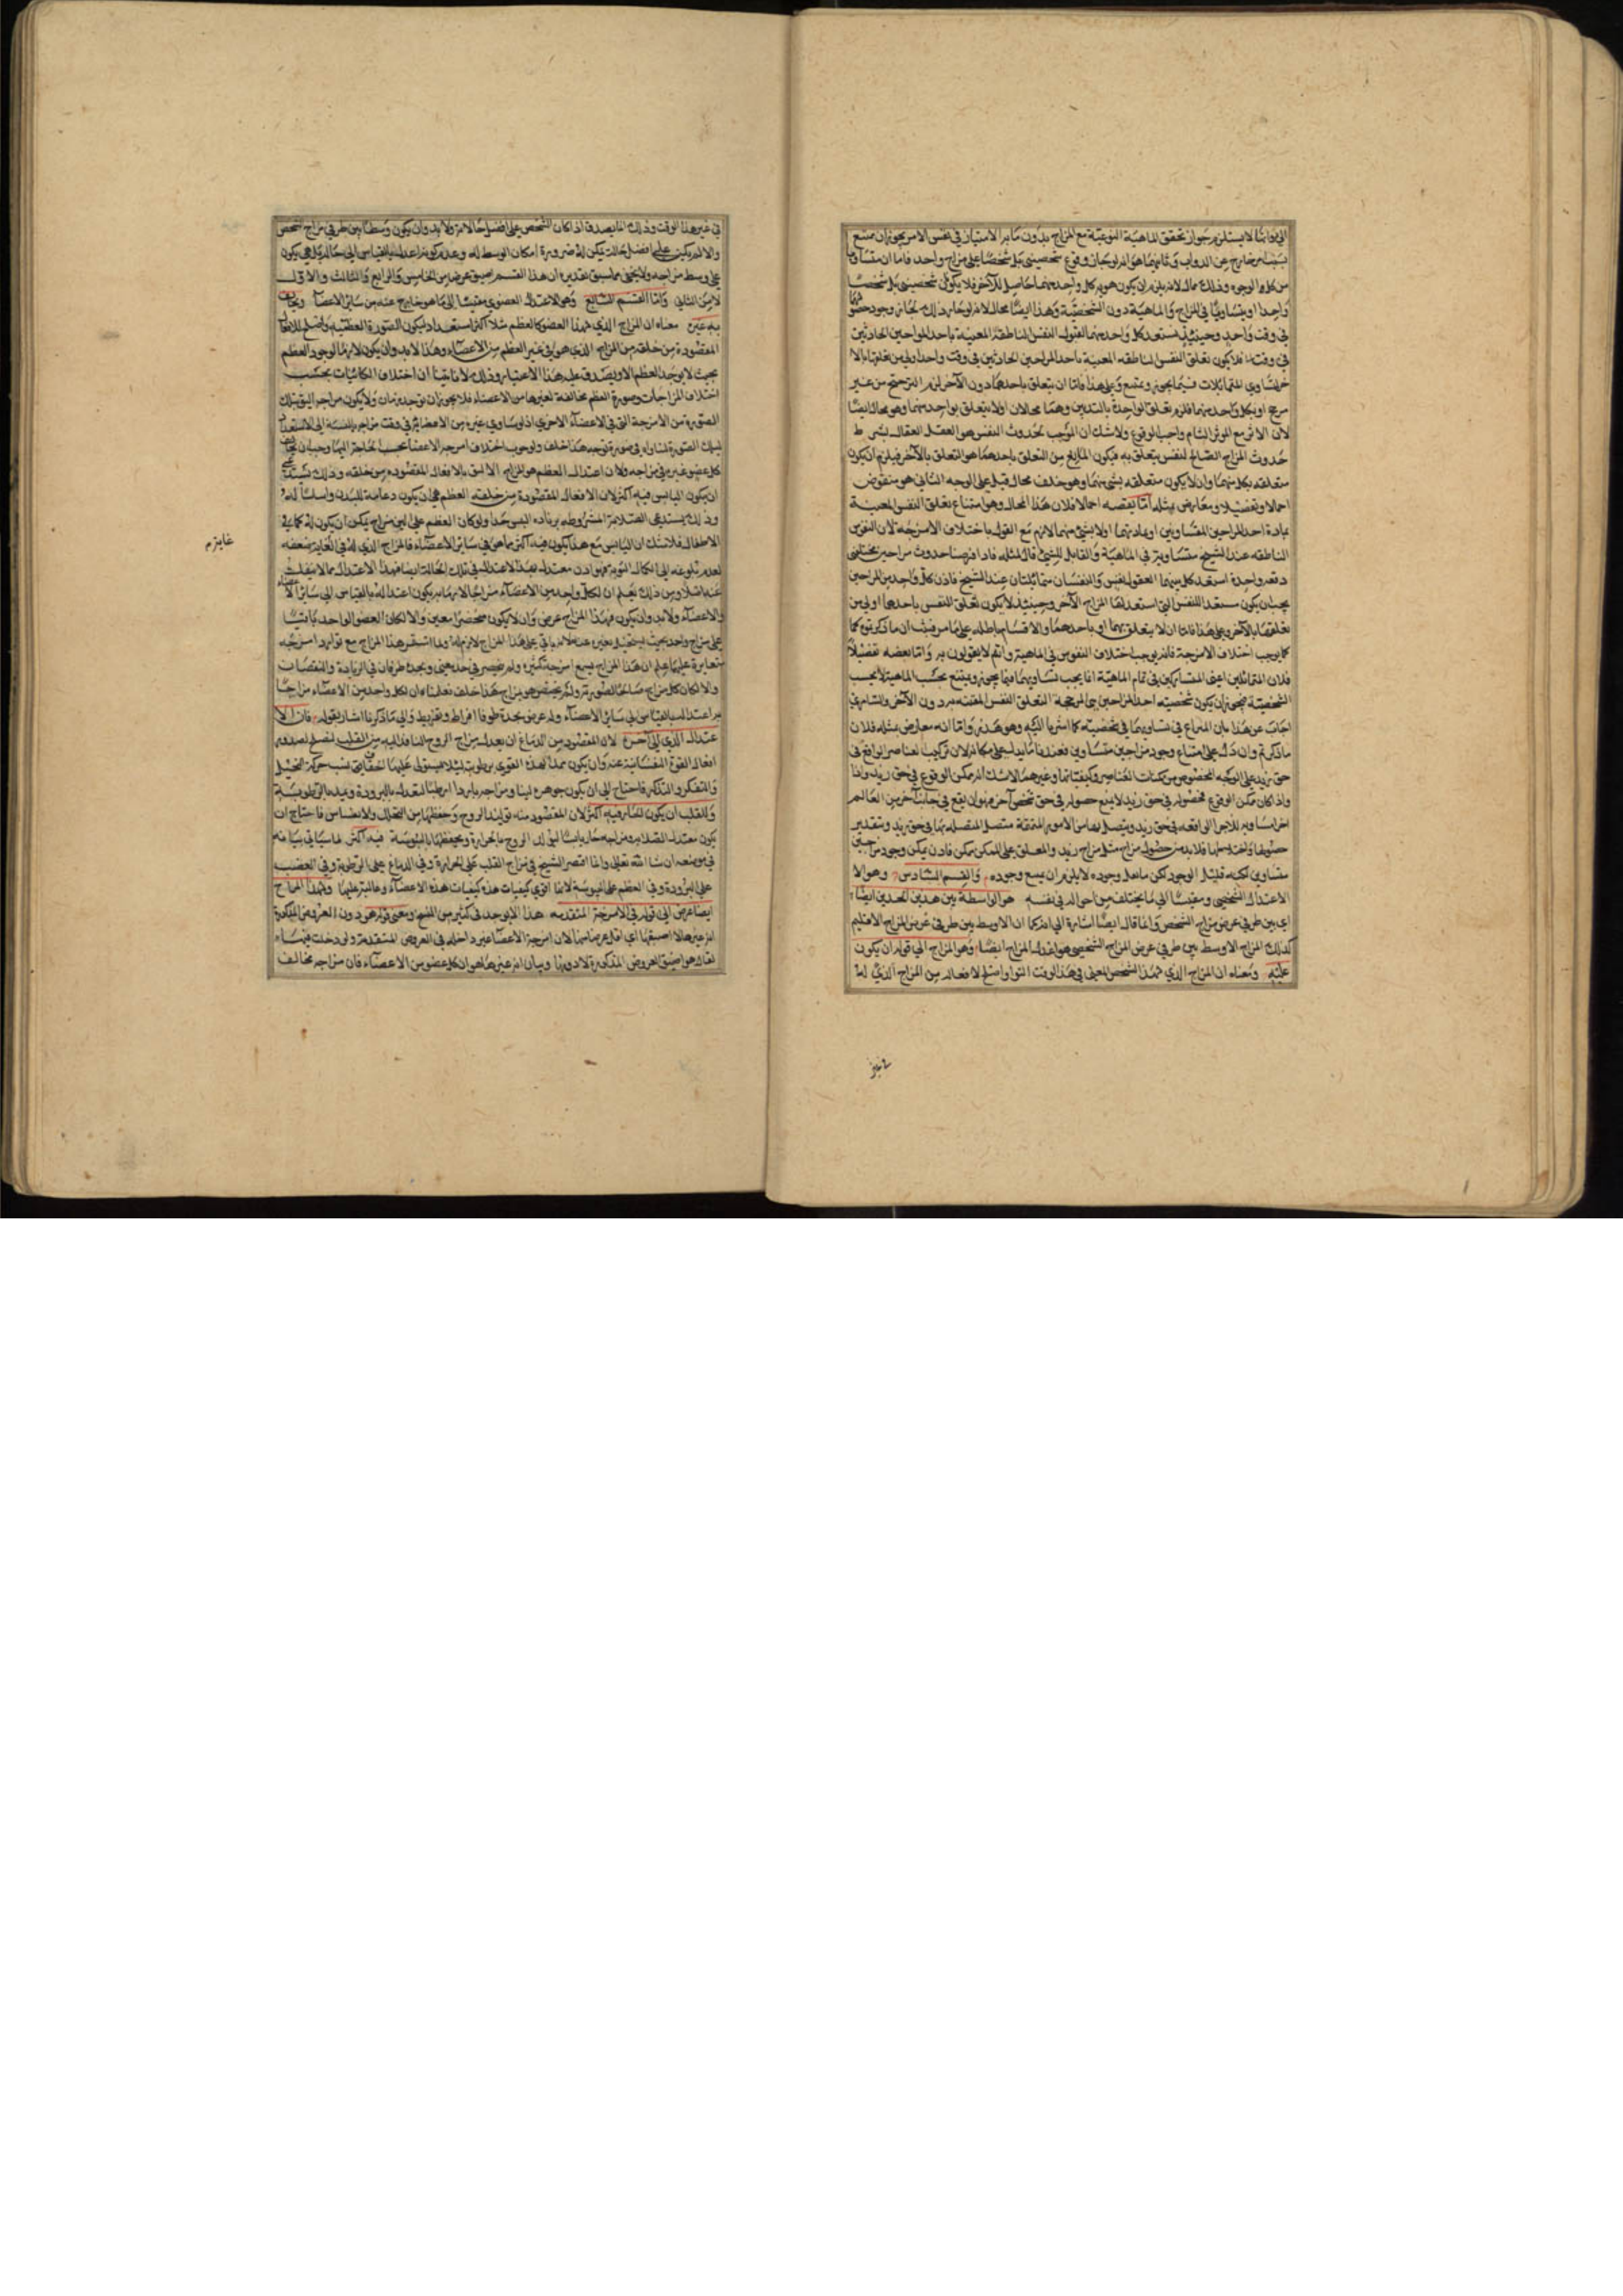 الى ذواتها لا يستلزم جواز تحقق الماهية النوعية مع المزاج بدون ما به الامتياز في نفس الامر يجوز ان يمتنع
بسبب امر خارج عن الذوات وثانيهما هو انه لو جاز وقوع شخصين على مزاج واحد فاما ان يتساويا
من كل الوجوه وذلك محال لانه يلزم ان يكون هوية كل واحد منهما حاصلة للآخر فلا يكونان شخصين بل شخصا
واحدا او يتساويا في المزاج والماهية دون الشخصية وهذا ايضا محال لانه لو جاز ذلك لجاز وجود
في وقت واحد وحينئذ يستعد كل واحد منهما لقبول النفس الناطقة المعينة باحد المزاجين الحادثين
في وقت فلا يكون تعلق النفس الناطقة المعينة باحد المزاجين الحادثين في وقت واحد اولى من تعلقها بالآخر
المتماثلات فيما يجوز ويمتنع وعلى هذا فاما ان يتعلق باحدهما دون الآخر لزم الترجيح من غير
مرجح او بكل واحد منهما فلزم تعلق الواحدة بالبدنين وهما محالان او لا يتعلق بواحد منهما وهو محال ايضا
لان الاثر مع المؤثر التام واجب الوقوع ولا شك ان الموجب لحدوث النفس هو العقل الفعال بشرط
حدوث المزاج الصالح لنفس يتعلق به فيكون المانع من التعلق باحدهما هو التعلق بالآخر فيلزم ان يكون
متعلقة بكل منهما وان لا يكون متعلقة بشيء منهما وهو خلف محال قيل على الوجه الثاني هو منقوض
اجمالا وتفصيلا ومعارض بمثله اما نقضه اجمالا فلان هذا المحال وهو امتناع تعلق النفس المعينة
بمادة احد المزاجين المتساويين او بمادتهما او لا بشيء منهما لازم مع القول باختلاف الامزجة لان النفوس
الناطقة عند الشيخ متساوية في الماهية والقابل للشيء قابل لمثله فاذا فرضنا حدوث مزاجين مختلفين
دفعة واحدة استعد كل منهما لقبول نفس والنفسان متماثلتان عند الشيخ فاذن كل واحد من المزاجين
يجب ان يكون مستعدا للنفس التي استعد لها المزاج الآخر وحينئذ لا يكون تعلق النفس باحدهما اولى من
تعلقها بالآخر وعلى هذا فاما ان لا يتعلق بهما او باحدهما والاقسام باطلة على ما مر فثبت ان ما ذكرتموه كما
كما يوجب اختلاف الامزجة فانه يوجب اختلاف النفوس في الماهية وانتم لا يقولون به واما نقضه تفصيلا
فلان المتماثلين اعني المتشاركين في تمام الماهية انما يجب تساويهما فيما يجوز ويمتنع بحسب الماهية لا بحسب
الشخصية فيجوز ان يكون شخصية احد المزاجين هي المرجحة لتعلق النفس المعينة به دون الآخر والسامري
اجاب عن هذا بان النزاع في تساويهما في شخصيته كما اشرنا اليه وهو هذر واما انه معارض بمثله فلان
ما ذكرتم وان دل على امتناع وجود مزاجين متساويين فعندنا ما يدل على امكانه لان تركيب العناصر الواقع في
حق زيد على الوجه المخصوص من كميات العناصر وكيفياتها وغيرهما لا شك انه ممكن الوقوع في حق زيد واذا
واذا كان ممكن الوقوع فحصوله في حق زيد لا يمنع حصوله في حق شخص آخر فهو ان يقع في جانب آخر من العالم
اجزاء مساوية للاجزاء الواقعة في حق زيد ويتصل بها من الامور المتفقة مثل المتصلة بها في حق زيد وبتقدير
حصولها واختلاطها فلا بد من حصول مزاج مثل مزاج زيد والمعلق على الممكن ممكن فاذن يمكن وجود مزاجين
متساويين لكنه قليل الوجود لكن ما يقل وجوده لا يلزم ان يمتنع وجوده والقسم السادس وهو الا
الاعتدال الشخصي ومقيسا الى ما يختلف من احواله في نفسه هو الواسطة بين هذين الحدين ايضا
اي بين طرفي عرض مزاج الشخص وانما قال ايضا اشارة الى انه كما ان الاوسط بين طرفي عرض المزاج الاقليم
كذلك المزاج الاوسط بين طرفي عرض المزاج الشخصي هو اعدل المزاج ايضا وهو المزاج الى قوله ان يكون
عليه ومعناه ان المزاج الذي لهذا الشخص المعين في هذا الوقت اليق او اصلح لافعاله من المزاج الذي له
في غير هذا الوقت وذلك انما يصدق اذا كان الشخص على افضل حالاته ولا بد وان يكون وسطا بين طرفي مزاج الشخص
والا لم يكن على افضل حالة يمكن له ضرورة امكان الوسط له وعدم كونه اعدل بالقياس الى حالة يكون
على وسط مزاجه ولا يخفى مما سبق تقديره ان هذا القسم اضيق عرضا من الخامس والرابع والثالث والاول
لا من الثاني واما القسم السابع وهو الاعتدال العضوي مقيسا الى ما هو خارج عنه من سائر الاعضاء ويخالف
به غيره معناه ان المزاج الذي لهذا العضو كالعظم مثلا اكثر استعدادا ليكون الصورة العظمية واصلح للافعال
المقصودة من خلقه من المزاج الذي هو في غير العظم من الاعضاء وهذا لا بد وان يكون لازما لوجود العظم
بحيث لا يوجد العظم الا ويصدق عليه هذا الاعتبار وذلك لانا بينا ان اختلاف الكائنات بحسب
اختلاف المزاجات وصورة العظم مخالفة لغيرها من الاعضاء فلا يجوز ان يوجد زمان ولا يكون مزاجه اليق بتلك
الصورة من الامزجة التي في الاعضاء الاخرى اذ لو ساوى غيره من الاعضاء في وقت مزاجه بالنسبة الى الاستعداد
لتلك الصورة لتساويا في صورة نوعية هذا خلف ولوجوب اختلاف امزجة الاعضاء بحسب الحاجة اليها وجب ان يخالف
كل عضو غيره في مزاجه ولان اعتدال العظم هو المزاج الاليق بالافعال المقصودة من خلقه وذلك يستدعي
ان يكون اليابس فيه اكثر لان الافعال المقصودة من خلقه العظم هي ان يكون دعامة للبدن واساسا له
وذلك يستدعي الصلابة المشروطة بزيادة اليبس جدا ولو كان العظم على الين مزاج يمكن ان يكون له كما في
الاطفال فلا شك ان اليابس مع هذا يكون فيه اكثر مما هو في سائر الاعضاء فالمزاج الذي له في الغاية بضعفه
لعدم بلوغه الى الكمال النوعي فهو اذن معتدل بهذا الاعتدال في تلك الحالة ايضا فهذا الاعتدال مما لا ينفك
عنه اصلا ومن ذلك يعلم ان لكل واحد من الاعضاء مزاجا لازما به يكون اعتداله بالقياس الى سائر الاعضاء
والاعضاء ولا بد وان يكون لهذا المزاج عرض وان لا يكون منحصرا معين والا لكان العضو الواحد ثابتا
على مزاج واحد بحيث يستحيل تغيره عنه لانه باق على هذا المزاج لازم له ولما استقر هذا المزاج مع توارد امزجة
متغايرة عليها علم ان هذا المزاج يسع امزجة كثيرة ولم ينحصر في حد معين ويحده طرفان في الزيادة والنقصان
والا لكان كل مزاج صالحا لصورته ولم يختص هو بمزاج هذا خلف فعلمنا ان لكل واحد من الاعضاء مزاجا
به اعتداله بالقياس الى سائر الاعضاء وله عرض يحده طرفا افراط وتفريط والى ما ذكرنا اشار بقوله فان الا
عتدال الذي الى آخره لان المقصود من الدماغ ان يعدل مزاج الروح النافذ اليه من القلب ليصلح لصدور
افعال القوة النفسانية عنه وان يكون مبدأ لهذه القوى برطوبته لئلا يستولي عليها الجفاف بسبب حركة التخيل
والتفكر والتذكر فاحتاج الى ان يكون جوهره لينا ومزاجه باردا رطبا ليعدله بالبرودة ويمده بالرطوبة
وللقلب ان يكون الحار فيه اكثر لان المقصود منه توليد الروح وحفظها من التحلل والانغشاش فاحتاج ان
يكون معتدل الصلابة ومزاجه حارا يابسا ليولد الروح بالحرارة ويحفظها باليبوسة فيه اكثر لما سيأتي بيانه
في موضعه ان شاء الله تعالى وانما اقتصر الشيخ في مزاج القلب على الحرارة وفي الدماغ على الرطوبة وفي العصب
على البرودة وفي العظم على اليبوسة لانها اقوى كيفيات هذه كيفيات هذه الاعضاء وغالبة عليها ولهذا المزاج
ايضا عرض الى قوله في الامزجة المتقدمة هذا لا يوجد في كثير من النسخ ومعنى قوله هو دون العروض المذكورة
انه غيرها لا اضيقها اي اقل عرضا منها لان امزجة الاعضاء غير داخلة في العروض المتقدمة ولو دخلت فيها
لقال هو اضيق العروض المذكورة لا دونها وبيان انه غيرها هو ان كل عضو من الاعضاء فان مزاجه مخالف